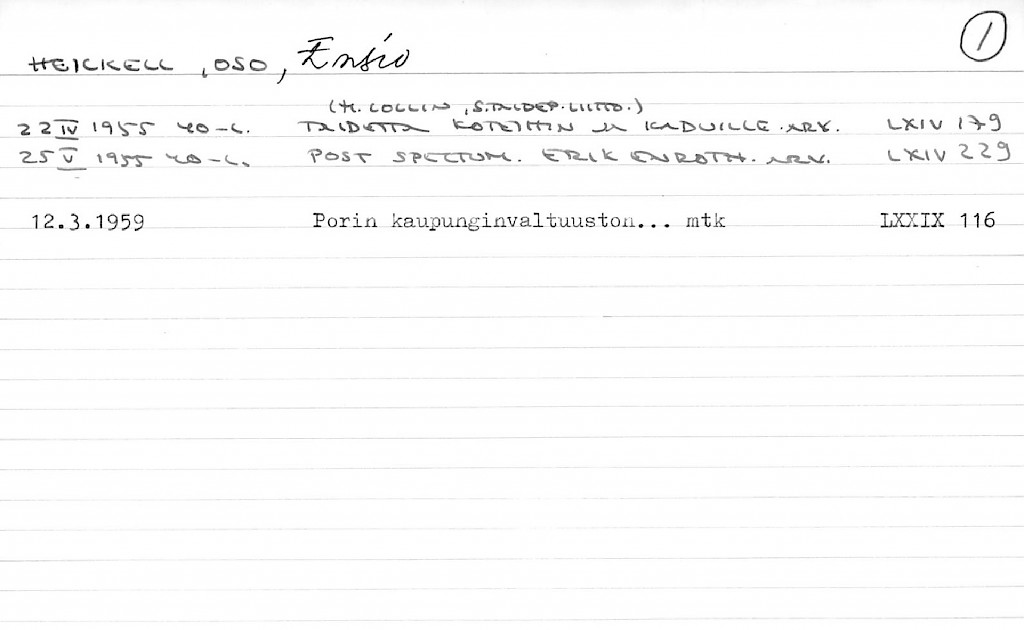 ①
HEICKELL, OSO, Ensio
(H. COLLIN, S.TAIDEP.LIITTO.)
22 IV 1955 YO-L. TAIDETTA KOTEIHIN JA KADUILLE. ARV. LXIV 179
25 V 1955 YO-L. POST SPECTUM. ERIK ENROTH. ARV. LXIV 229
12.3.1959 Porin kaupunginvaltuuston... mtk LXXIX 116